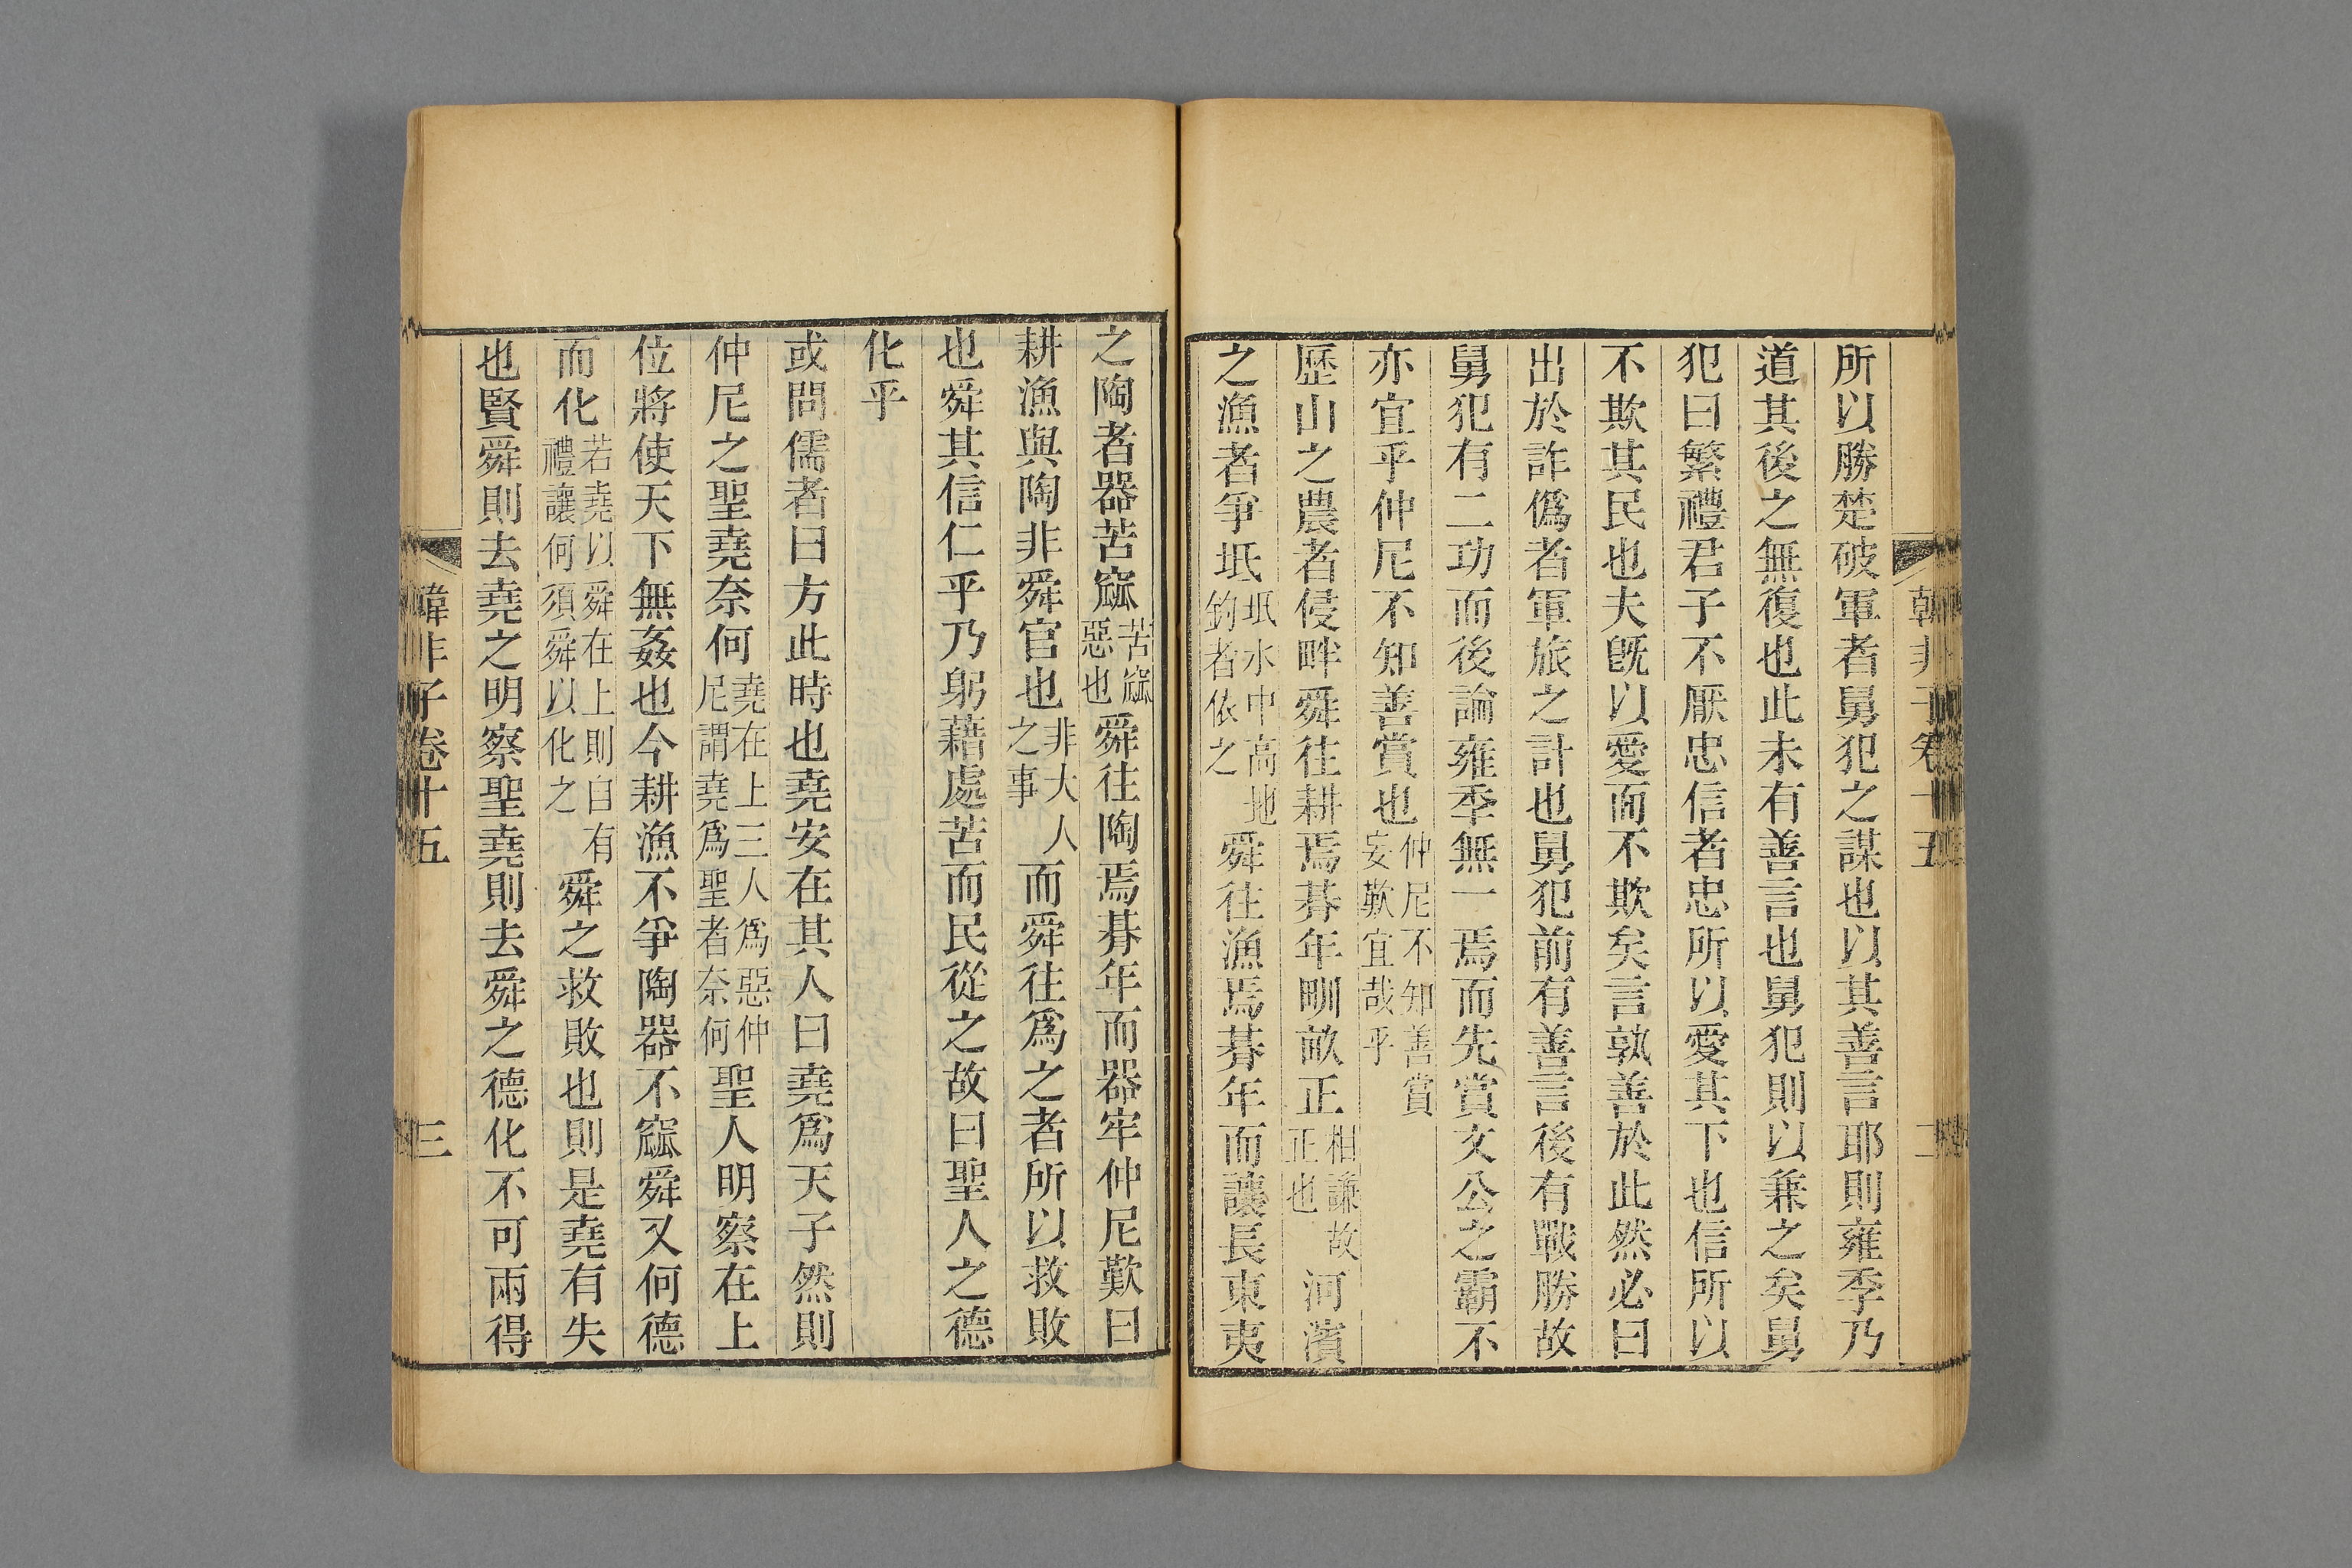 韓非子卷十五
二
所以勝楚破軍者舅犯之謀也以其善言耶則雍季乃
道其後之無復也此未有善言也舅犯則以兼之矣舅
犯曰繁禮君子不厭忠信者忠所以愛其下也信所以
不欺其民也夫旣以愛而不欺矣言孰善於此然必曰
出於詐僞者軍旅之計也舅犯前有善言後有戰勝故
舅犯有二功而後論雍季無一焉而先賞文公之霸不
亦宜乎仲尼不知善賞也仲尼不知善賞妄歎宜哉乎
歷山之農者侵畔舜往耕焉朞年甽畝正相謙故正也河濱
之漁者爭坻坻水中高地釣者依之舜往漁焉朞年而讓長東夷
之陶者器苦窳苦窳惡也舜往陶焉朞年而器牢仲尼歎曰
耕漁與陶非舜官也非大人之事而舜往爲之者所以救敗
也舜其信仁乎乃躬藉處苦而民從之故曰聖人之德
化乎
或問儒者曰方此時也堯安在其人曰堯爲天子然則
仲尼之聖堯奈何堯在上三人爲惡仲尼謂堯爲聖者奈何聖人明察在上
位將使天下無姦也今耕漁不爭陶器不窳舜又何德
而化若堯以舜在上則自有禮讓何須舜以化之舜之救敗也則是堯有失
也賢舜則去堯之明察聖堯則去舜之德化不可兩得
韓非子卷十五
三